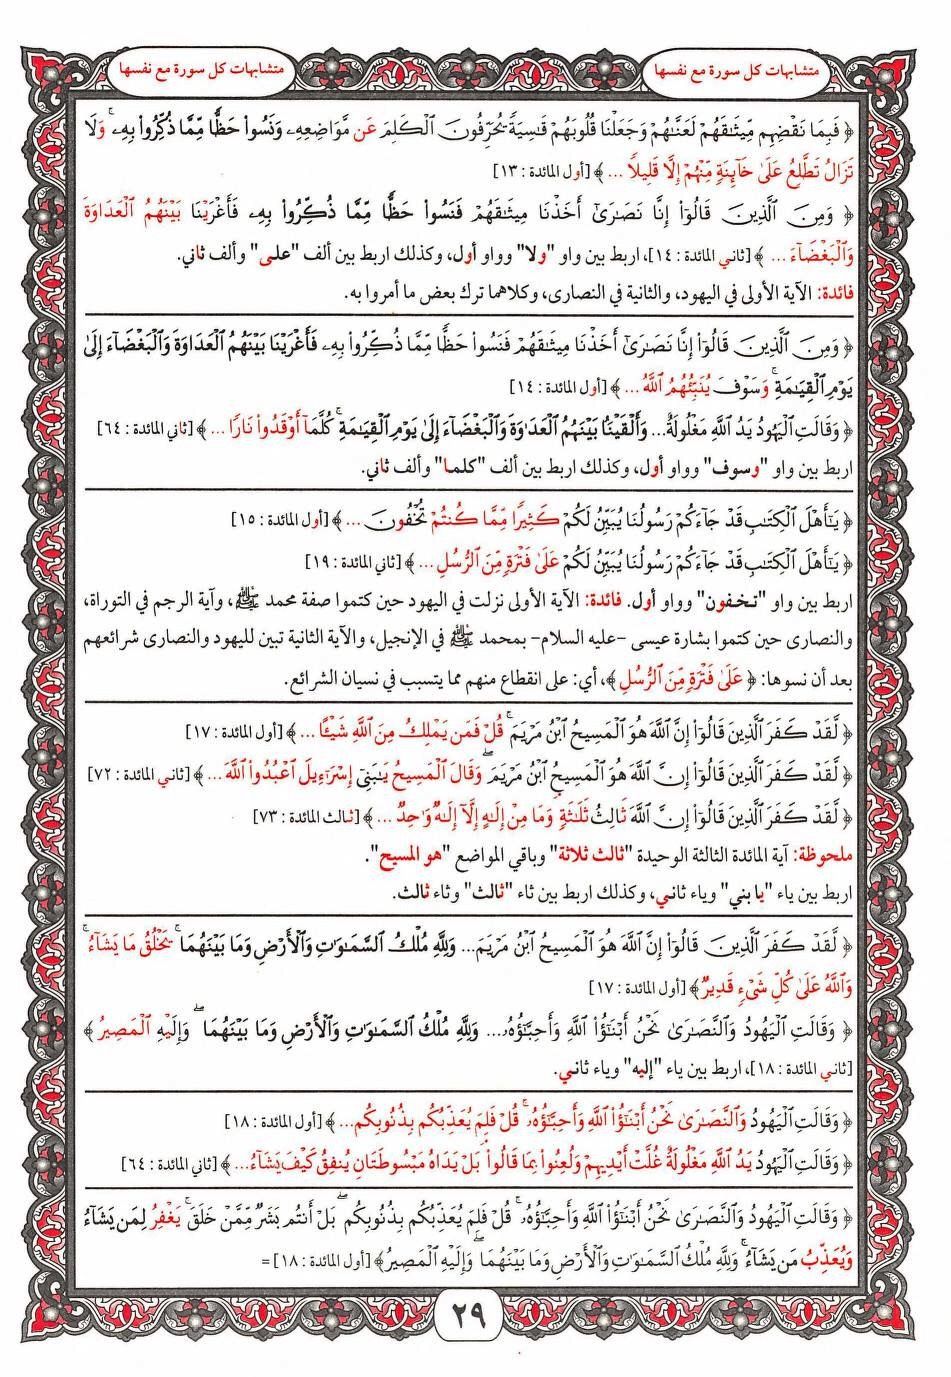 متشابهات كل سورة مع نفسها
متشابهات كل سورة مع نفسها
﴿ فَبِمَا نَقْضِهِم مِّيثَٰقَهُمْ لَعَنَّٰهُمْ وَجَعَلْنَا قُلُوبَهُمْ قَٰسِيَةً يُحَرِّفُونَ ٱلْكَلِمَ عَن مَّوَاضِعِهِۦ وَنَسُوا۟ حَظًّا مِّمَّا ذُكِّرُوا۟ بِهِۦ ۚ وَلَا
تَزَالُ تَطَّلِعُ عَلَىٰ خَآئِنَةٍ مِّنْهُمْ إِلَّا قَلِيلًا ... ﴾ [أول المائدة : ١٣]
﴿ وَمِنَ ٱلَّذِينَ قَالُوٓا۟ إِنَّا نَصَٰرَىٰٓ أَخَذْنَا مِيثَٰقَهُمْ فَنَسُوا۟ حَظًّا مِّمَّا ذُكِّرُوا۟ بِهِۦ فَأَغْرَيْنَا بَيْنَهُمُ ٱلْعَدَاوَةَ
وَٱلْبَغْضَآءَ ... ﴾ [ثاني المائدة : ١٤]، اربط بين واو "ولا" وواو أول، وكذلك اربط بين ألف "على" وألف ثاني.
فائدة: الآية الأولى في اليهود، والثانية في النصارى، وكلاهما ترك بعض ما أمروا به.
﴿ وَمِنَ ٱلَّذِينَ قَالُوٓا۟ إِنَّا نَصَٰرَىٰٓ أَخَذْنَا مِيثَٰقَهُمْ فَنَسُوا۟ حَظًّا مِّمَّا ذُكِّرُوا۟ بِهِۦ فَأَغْرَيْنَا بَيْنَهُمُ ٱلْعَدَاوَةَ وَٱلْبَغْضَآءَ إِلَىٰ
يَوْمِ ٱلْقِيَٰمَةِ ۚ وَسَوْفَ يُنَبِّئُهُمُ ٱللَّهُ ... ﴾ [أول المائدة : ١٤]
﴿ وَقَالَتِ ٱلْيَهُودُ يَدُ ٱللَّهِ مَغْلُولَةٌ ... وَأَلْقَيْنَا بَيْنَهُمُ ٱلْعَدَٰوَةَ وَٱلْبَغْضَآءَ إِلَىٰ يَوْمِ ٱلْقِيَٰمَةِ ۚ كُلَّمَآ أَوْقَدُوا۟ نَارًا ... ﴾ [ثاني المائدة : ٦٤]
اربط بين واو "وسوف" وواو أول، وكذلك اربط بين ألف "كلما" وألف ثاني.
﴿ يَٰٓأَهْلَ ٱلْكِتَٰبِ قَدْ جَآءَكُمْ رَسُولُنَا يُبَيِّنُ لَكُمْ كَثِيرًا مِّمَّا كُنتُمْ تُخْفُونَ ... ﴾ [أول المائدة : ١٥]
﴿ يَٰٓأَهْلَ ٱلْكِتَٰبِ قَدْ جَآءَكُمْ رَسُولُنَا يُبَيِّنُ لَكُمْ عَلَىٰ فَتْرَةٍ مِّنَ ٱلرُّسُلِ ... ﴾ [ثاني المائدة : ١٩]
اربط بين واو "تخفون" وواو أول. فائدة: الآية الأولى نزلت في اليهود حين كتموا صفة محمد ﷺ، وآية الرجم في التوراة،
والنصارى حين كتموا بشارة عيسى -عليه السلام- بمحمد ﷺ في الإنجيل، والآية الثانية تبين لليهود والنصارى شرائعهم
بعد أن نسوها: ﴿ عَلَىٰ فَتْرَةٍ مِّنَ ٱلرُّسُلِ ﴾، أي: على انقطاع منهم مما يتسبب في نسيان الشرائع.
﴿ لَّقَدْ كَفَرَ ٱلَّذِينَ قَالُوٓا۟ إِنَّ ٱللَّهَ هُوَ ٱلْمَسِيحُ ٱبْنُ مَرْيَمَ ۚ قُلْ فَمَن يَمْلِكُ مِنَ ٱللَّهِ شَيْـًٔا ... ﴾ [أول المائدة : ١٧]
﴿ لَقَدْ كَفَرَ ٱلَّذِينَ قَالُوٓا۟ إِنَّ ٱللَّهَ هُوَ ٱلْمَسِيحُ ٱبْنُ مَرْيَمَ ۖ وَقَالَ ٱلْمَسِيحُ يَٰبَنِىٓ إِسْرَٰٓءِيلَ ٱعْبُدُوا۟ ٱللَّهَ ... ﴾ [ثاني المائدة : ٧٢]
﴿ لَّقَدْ كَفَرَ ٱلَّذِينَ قَالُوٓا۟ إِنَّ ٱللَّهَ ثَالِثُ ثَلَٰثَةٍ ۘ وَمَا مِنْ إِلَٰهٍ إِلَّآ إِلَٰهٌ وَٰحِدٌ ... ﴾ [ثالث المائدة : ٧٣]
ملحوظة: آية المائدة الثالثة الوحيدة "ثالث ثلاثة" وباقي المواضع "هو المسيح".
اربط بين ياء "يا بني" وياء ثاني، وكذلك اربط بين ثاء "ثالث" وثاء ثالث.
﴿ لَّقَدْ كَفَرَ ٱلَّذِينَ قَالُوٓا۟ إِنَّ ٱللَّهَ هُوَ ٱلْمَسِيحُ ٱبْنُ مَرْيَمَ ... وَلِلَّهِ مُلْكُ ٱلسَّمَٰوَٰتِ وَٱلْأَرْضِ وَمَا بَيْنَهُمَا ۚ يَخْلُقُ مَا يَشَآءُ ۚ
وَٱللَّهُ عَلَىٰ كُلِّ شَىْءٍ قَدِيرٌ ﴾ [أول المائدة : ١٧]
﴿ وَقَالَتِ ٱلْيَهُودُ وَٱلنَّصَٰرَىٰ نَحْنُ أَبْنَٰٓؤُا۟ ٱللَّهِ وَأَحِبَّٰٓؤُهُۥ ... وَلِلَّهِ مُلْكُ ٱلسَّمَٰوَٰتِ وَٱلْأَرْضِ وَمَا بَيْنَهُمَا ۖ وَإِلَيْهِ ٱلْمَصِيرُ ﴾
[ثاني المائدة : ١٨]، اربط بين ياء "إليه" وياء ثاني.
﴿ وَقَالَتِ ٱلْيَهُودُ وَٱلنَّصَٰرَىٰ نَحْنُ أَبْنَٰٓؤُا۟ ٱللَّهِ وَأَحِبَّٰٓؤُهُۥ ۚ قُلْ فَلِمَ يُعَذِّبُكُم بِذُنُوبِكُم ... ﴾ [أول المائدة : ١٨]
﴿ وَقَالَتِ ٱلْيَهُودُ يَدُ ٱللَّهِ مَغْلُولَةٌ ۚ غُلَّتْ أَيْدِيهِمْ وَلُعِنُوا۟ بِمَا قَالُوا۟ ۘ بَلْ يَدَاهُ مَبْسُوطَتَانِ يُنفِقُ كَيْفَ يَشَآءُ ... ﴾ [ثاني المائدة : ٦٤]
﴿ وَقَالَتِ ٱلْيَهُودُ وَٱلنَّصَٰرَىٰ نَحْنُ أَبْنَٰٓؤُا۟ ٱللَّهِ وَأَحِبَّٰٓؤُهُۥ ۚ قُلْ فَلِمَ يُعَذِّبُكُم بِذُنُوبِكُم ۖ بَلْ أَنتُم بَشَرٌ مِّمَّنْ خَلَقَ ۚ يَغْفِرُ لِمَن يَشَآءُ
وَيُعَذِّبُ مَن يَشَآءُ ۚ وَلِلَّهِ مُلْكُ ٱلسَّمَٰوَٰتِ وَٱلْأَرْضِ وَمَا بَيْنَهُمَا ۖ وَإِلَيْهِ ٱلْمَصِيرُ ﴾ [أول المائدة : ١٨] =
٢٩